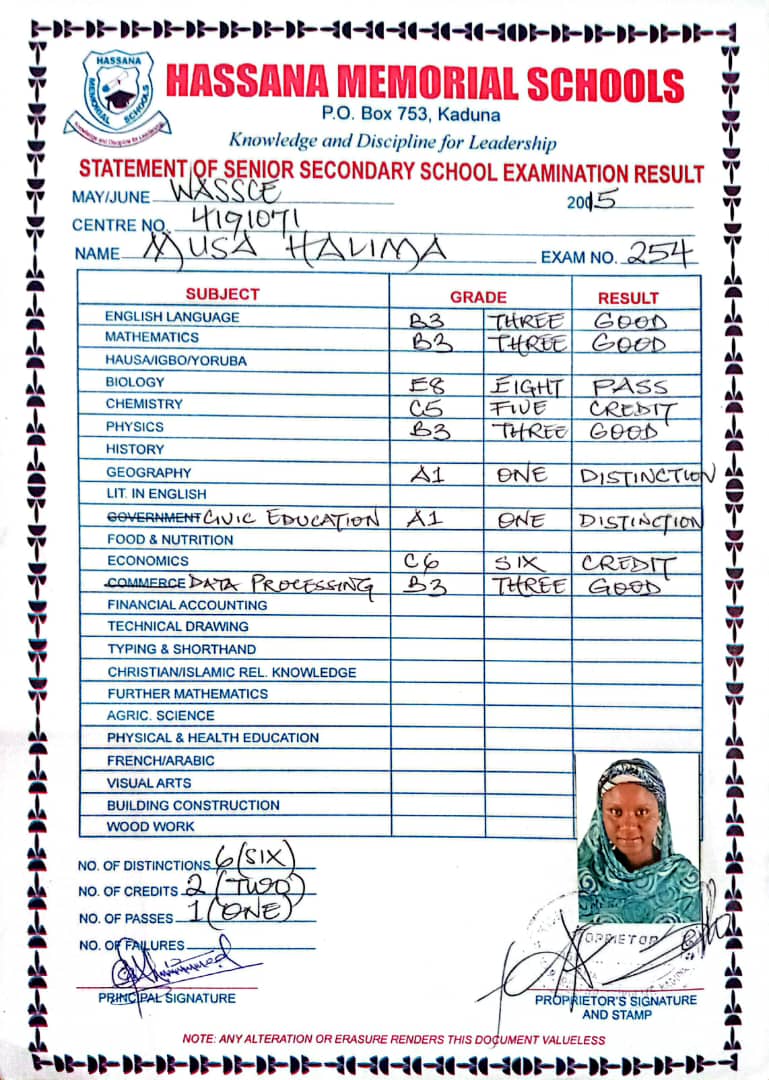 HASSANA
MEMORIAL SCHOOLS
Knowledge and Discipline for Leadership
HASSANA MEMORIAL SCHOOLS
P.O. Box 753, Kaduna
Knowledge and Discipline for Leadership
STATEMENT OF SENIOR SECONDARY SCHOOL EXAMINATION RESULT
MAY/JUNE WASSCE 2015
CENTRE NO. 4191071
NAME MUSA HALIMA EXAM NO. 254
SUBJECT GRADE RESULT
ENGLISH LANGUAGE B3 THREE GOOD
MATHEMATICS B3 THREE GOOD
HAUSA/IGBO/YORUBA
BIOLOGY E8 EIGHT PASS
CHEMISTRY C5 FIVE CREDIT
PHYSICS B3 THREE GOOD
HISTORY
GEOGRAPHY A1 ONE DISTINCTION
LIT. IN ENGLISH
GOVERNMENT CIVIC EDUCATION A1 ONE DISTINCTION
FOOD & NUTRITION
ECONOMICS C6 SIX CREDIT
COMMERCE DATA PROCESSING B3 THREE GOOD
FINANCIAL ACCOUNTING
TECHNICAL DRAWING
TYPING & SHORTHAND
CHRISTIAN/ISLAMIC REL. KNOWLEDGE
FURTHER MATHEMATICS
AGRIC. SCIENCE
PHYSICAL & HEALTH EDUCATION
FRENCH/ARABIC
VISUAL ARTS
BUILDING CONSTRUCTION
WOOD WORK
NO. OF DISTINCTIONS 6 (SIX)
NO. OF CREDITS 2 (TWO)
NO. OF PASSES 1 (ONE)
NO. OF FAILURES
PROPRIETOR
PRINCIPAL SIGNATURE
PROPRIETOR'S SIGNATURE
AND STAMP
NOTE: ANY ALTERATION OR ERASURE RENDERS THIS DOCUMENT VALUELESS